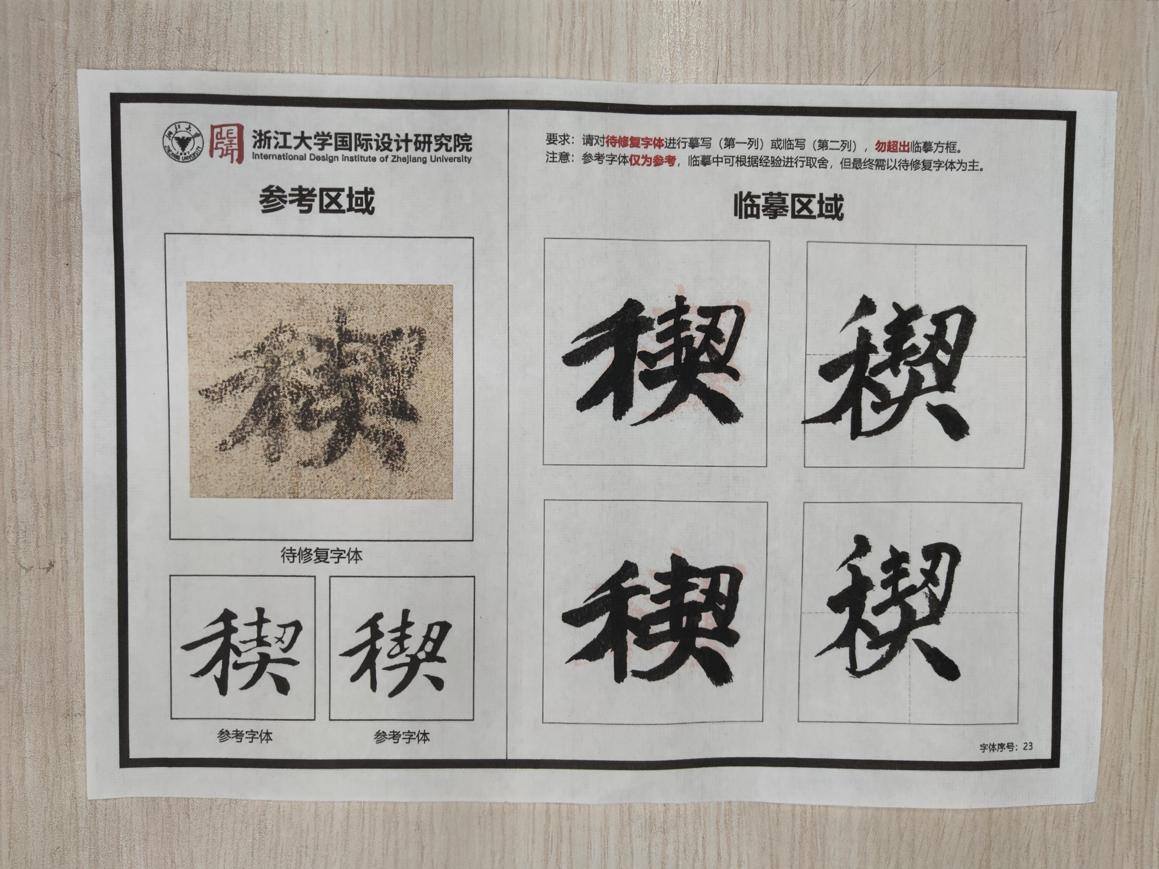 浙江大学国际设计研究院
International Design Institute of Zhejiang University
参考区域
稧
待修复字体
稧 稧
参考字体 参考字体
要求：请对待修复字体进行摹写（第一列）或临写（第二列），勿超出临摹方框。
注意：参考字体仅为参考，临摹中可根据经验进行取舍，但最终需以待修复字体为主。
临摹区域
稧 稧
稧 稧
字体序号：23